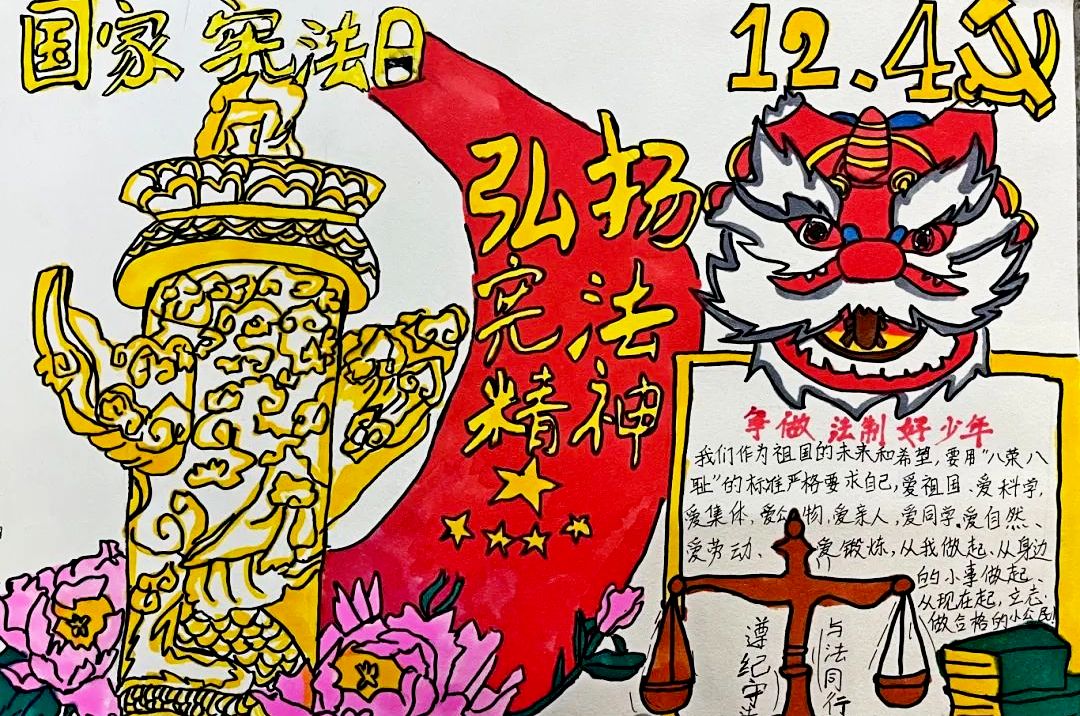 国家宪法日
12.4
弘扬
宪法
精神
争做法制好少年
我们作为祖国的未来和希望,要用"八荣八
耻"的标准严格要求自己,爱祖国、爱科学,
爱集体,爱公物,爱亲人,爱同学,爱自然、
爱劳动、爱锻炼,从我做起、从身边
的小事做起、
从现在起,立志
做合格的小公民!
遵纪守
与法同行